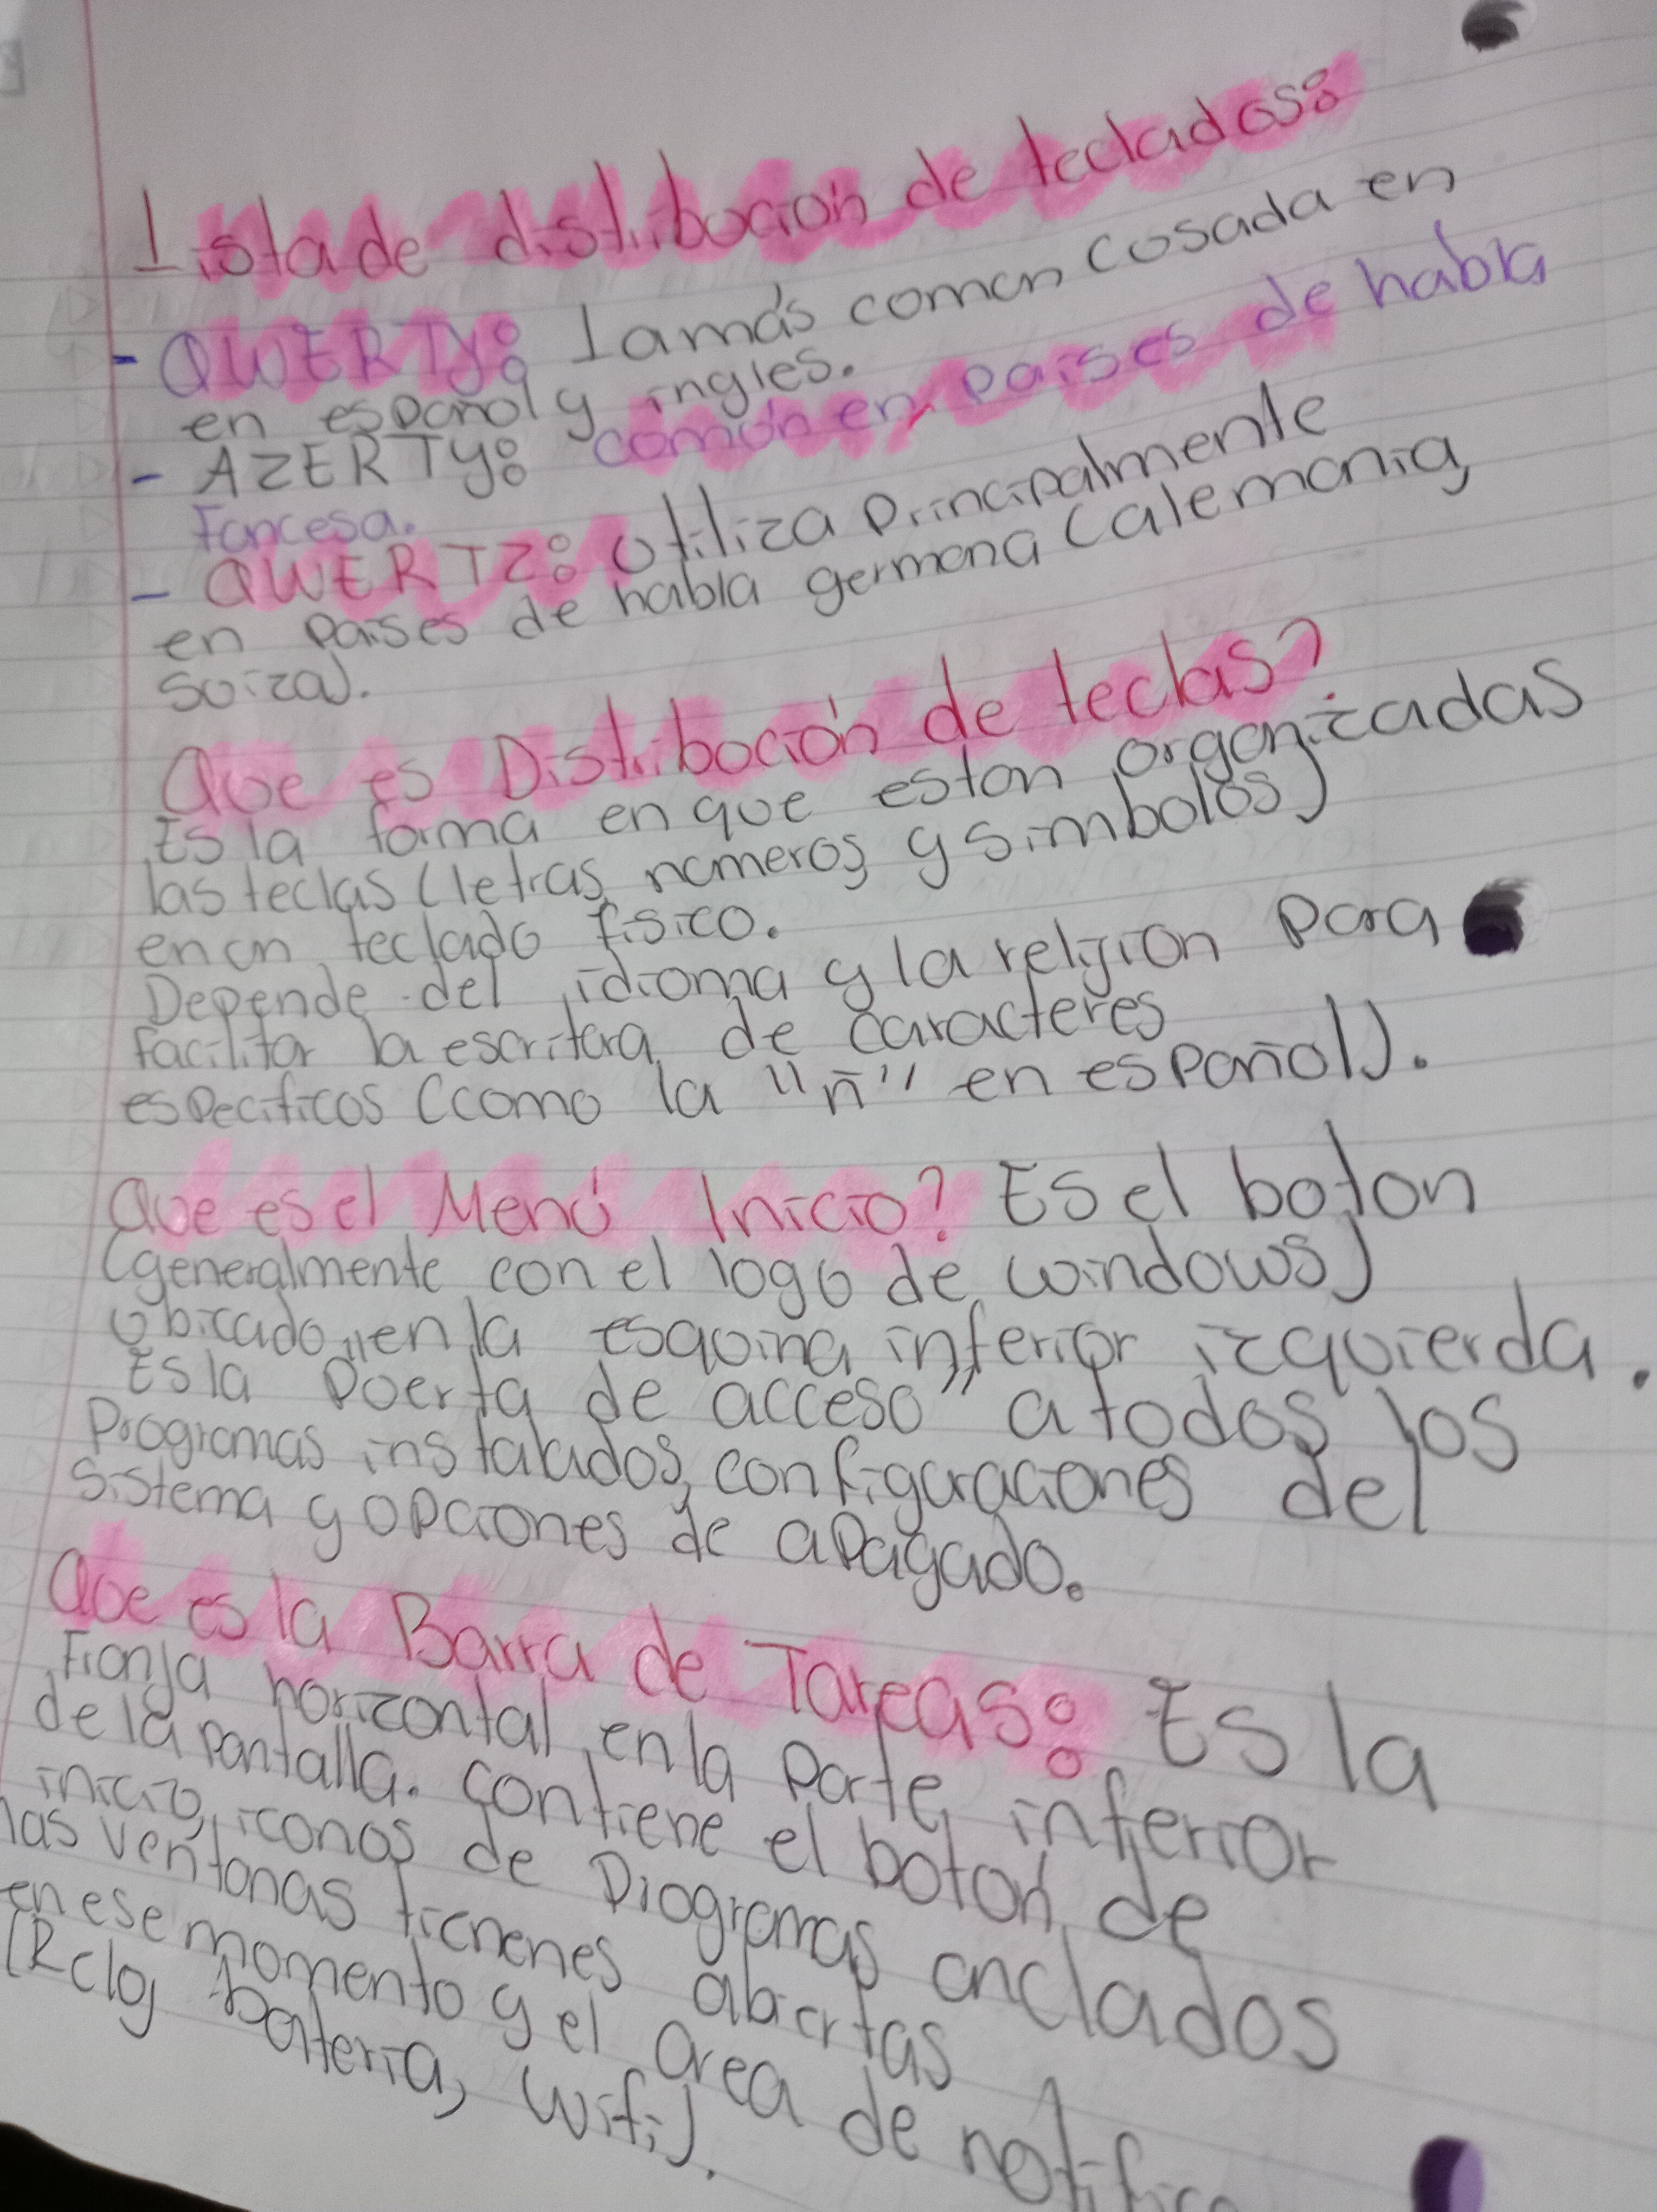 Lista de distribución de teclados:
- QWERTY: la más comun cusada en
en español y ingles.
- AZERTY: común en paises de habla
Francesa.
- QWERTZ: utiliza principalmente
en paises de habla germana (alemania,
suiza).
Que es Distribución de teclas?
Es la forma en que estan organizadas
las teclas (letras, numeros, y simbolos)
en un teclado fisico.
Depende del idioma y la religion para
facilitar la escritura de caracteres
especificos (como la "ñ" en español).
Que es el Menú Inicio? Es el boton
(generalmente con el logo de windows)
ubicado en la esquina inferior izquierda.
Es la "puerta de acceso" a todos los
programas instalados, configuraciones del
sistema y opciones de apagado.
Que es la Barra de Tareas: Es la
Franja horizontal en la parte inferior
de la pantalla. contiene el boton de
inicio, iconos de programas anclados
las ventanas tienenes abiertas
en ese momento y el area de notific
(Reloj bateria, wifi).